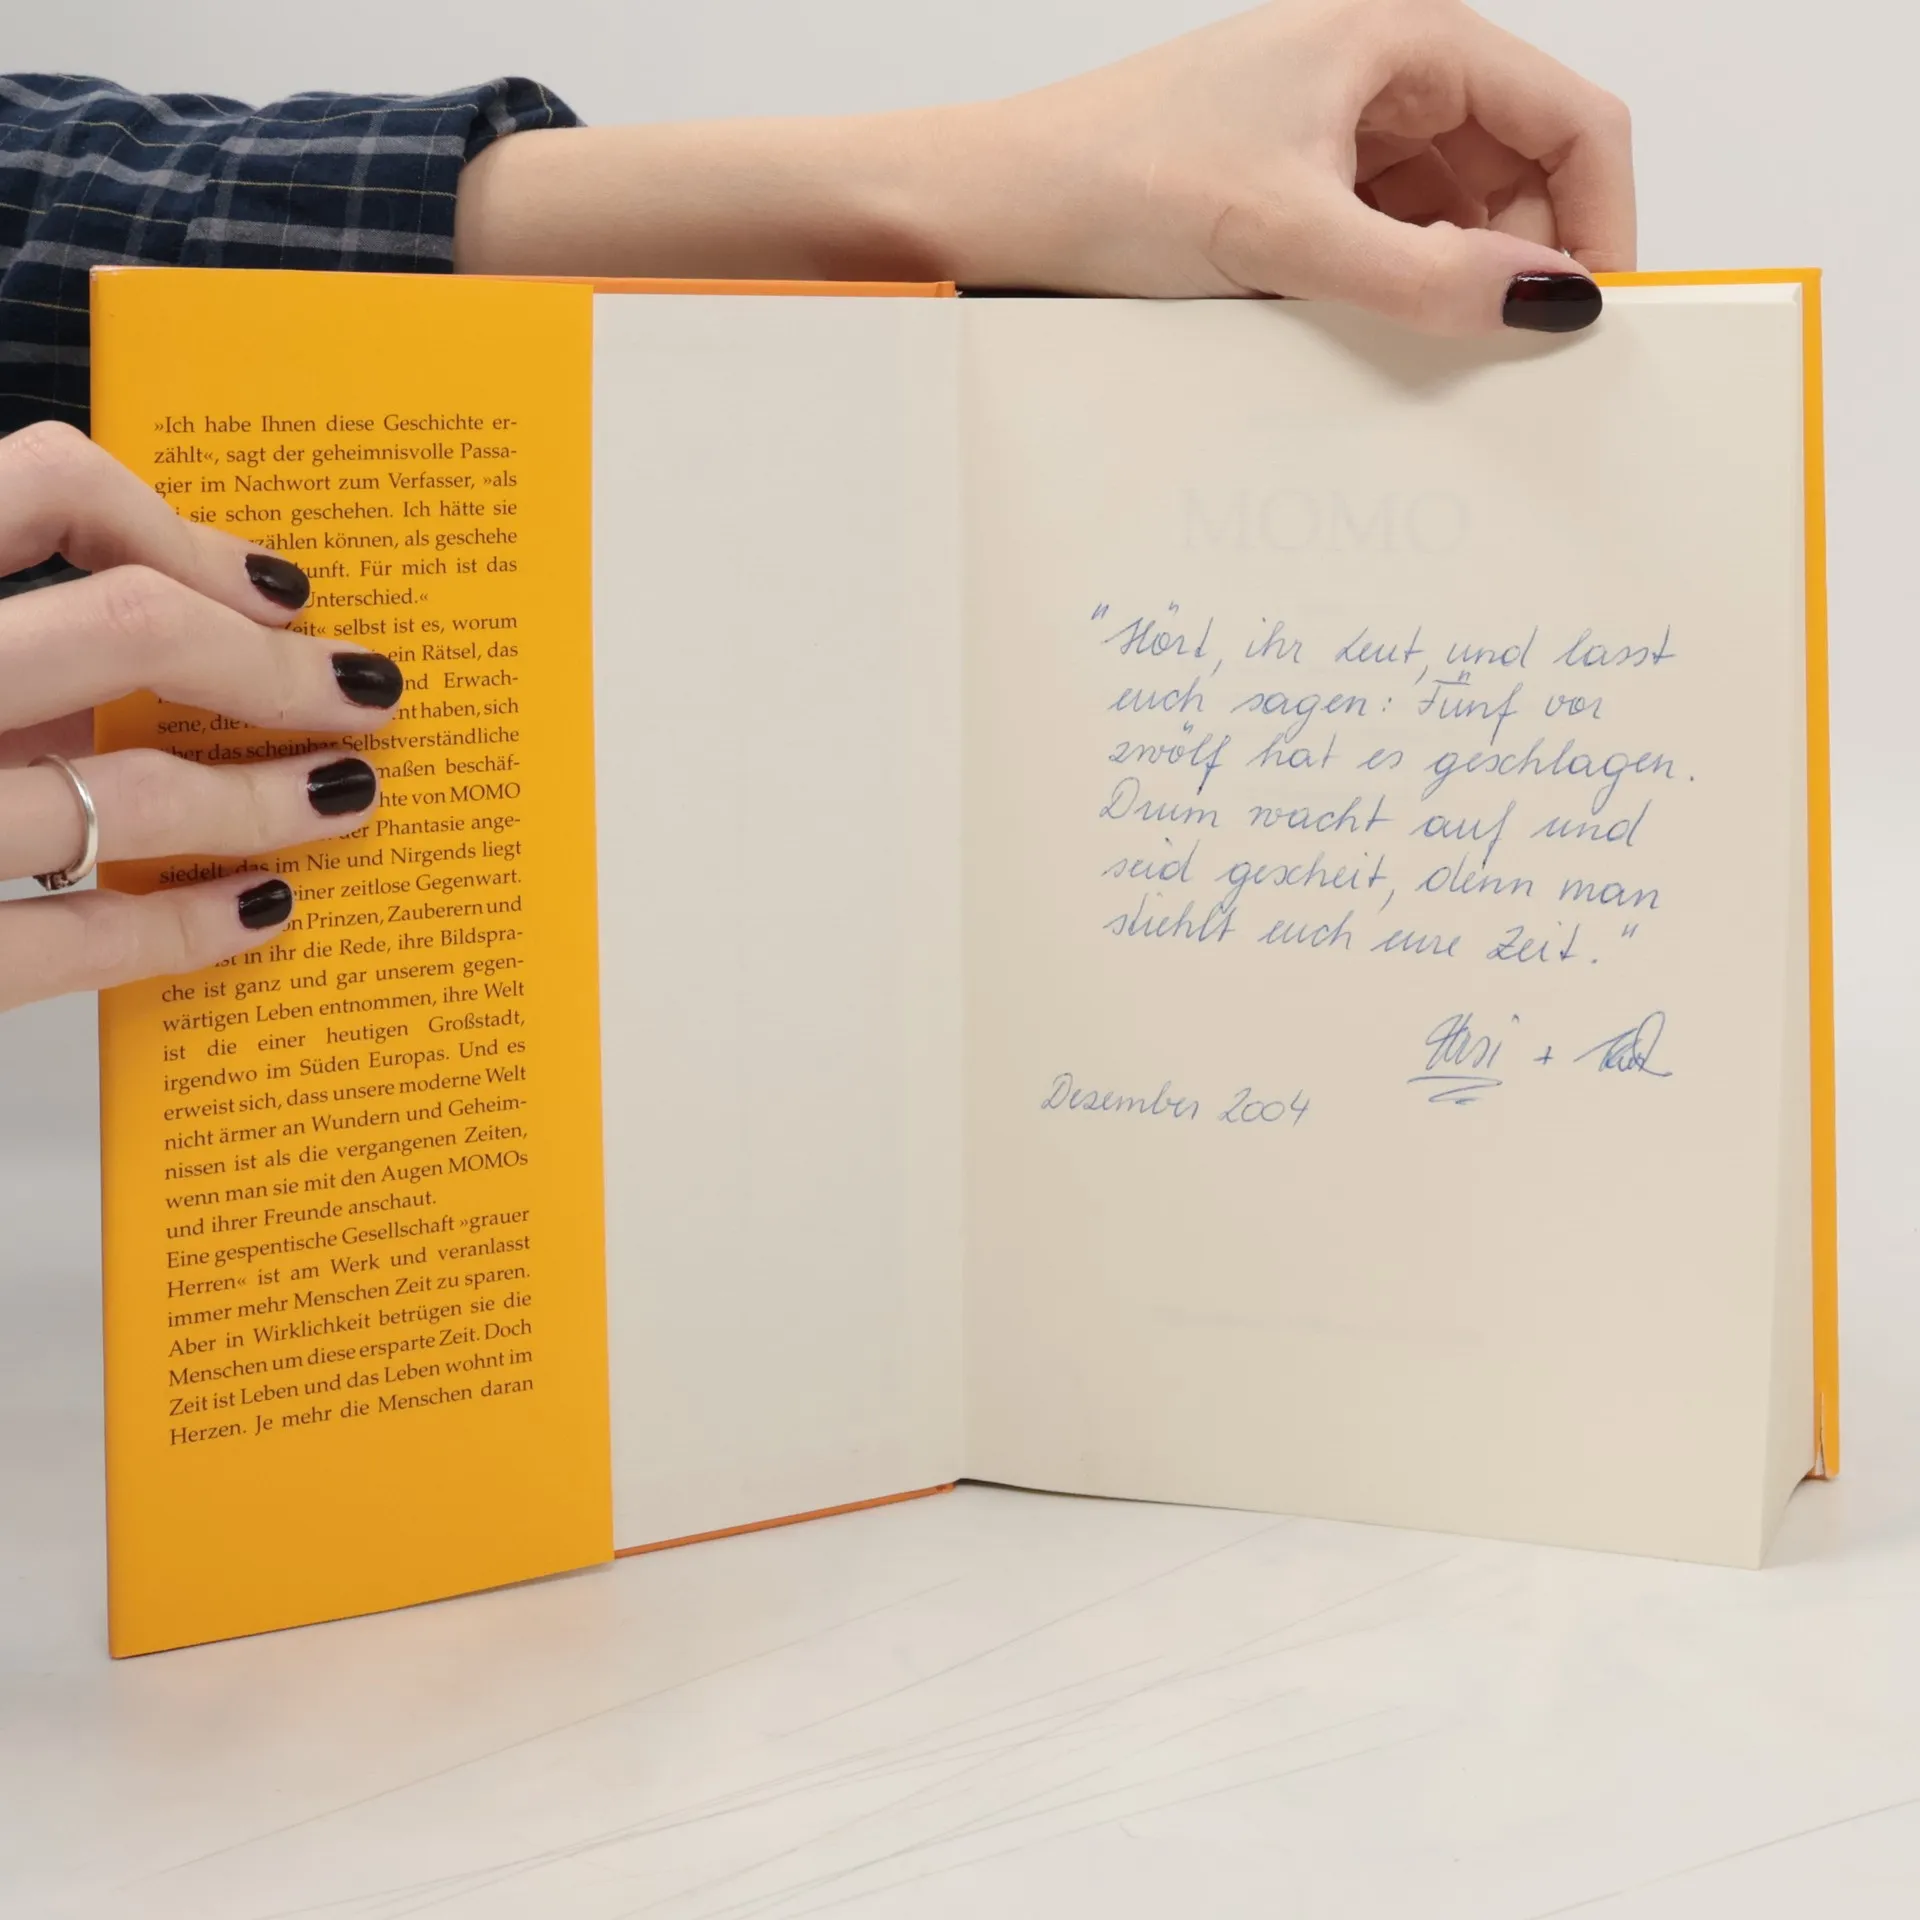 »Ich habe Ihnen diese Geschichte er-
zählt«, sagt der geheimnisvolle Passa-
gier im Nachwort zum Verfasser, »als
sie schon geschehen. Ich hätte sie
zählen können, als geschehe
kunft. Für mich ist das
Unterschied.«
Zeit« selbst ist es, worum
ein Rätsel, das
nd Erwach-
sene, die nt haben, sich
über das scheinbar Selbstverständliche
maßen beschäf-
hte von MOMO
der Phantasie ange-
siedelt, das im Nie und Nirgends liegt
einer zeitlose Gegenwart.
on Prinzen, Zauberern und
ist in ihr die Rede, ihre Bildspra-
che ist ganz und gar unserem gegen-
wärtigen Leben entnommen, ihre Welt
ist die einer heutigen Großstadt,
irgendwo im Süden Europas. Und es
erweist sich, dass unsere moderne Welt
nicht ärmer an Wundern und Geheim-
nissen ist als die vergangenen Zeiten,
wenn man sie mit den Augen MOMOs
und ihrer Freunde anschaut.
Eine gespentische Gesellschaft »grauer
Herren« ist am Werk und veranlasst
immer mehr Menschen Zeit zu sparen.
Aber in Wirklichkeit betrügen sie die
Menschen um diese ersparte Zeit. Doch
Zeit ist Leben und das Leben wohnt im
Herzen. Je mehr die Menschen daran
MOMO
"Hört, ihr Leut, und lasst
euch sagen: Fünf vor
zwölf hat es geschlagen.
Drum wacht auf und
seid gescheit, denn man
stiehlt euch eure Zeit."
+
Dezember 2004